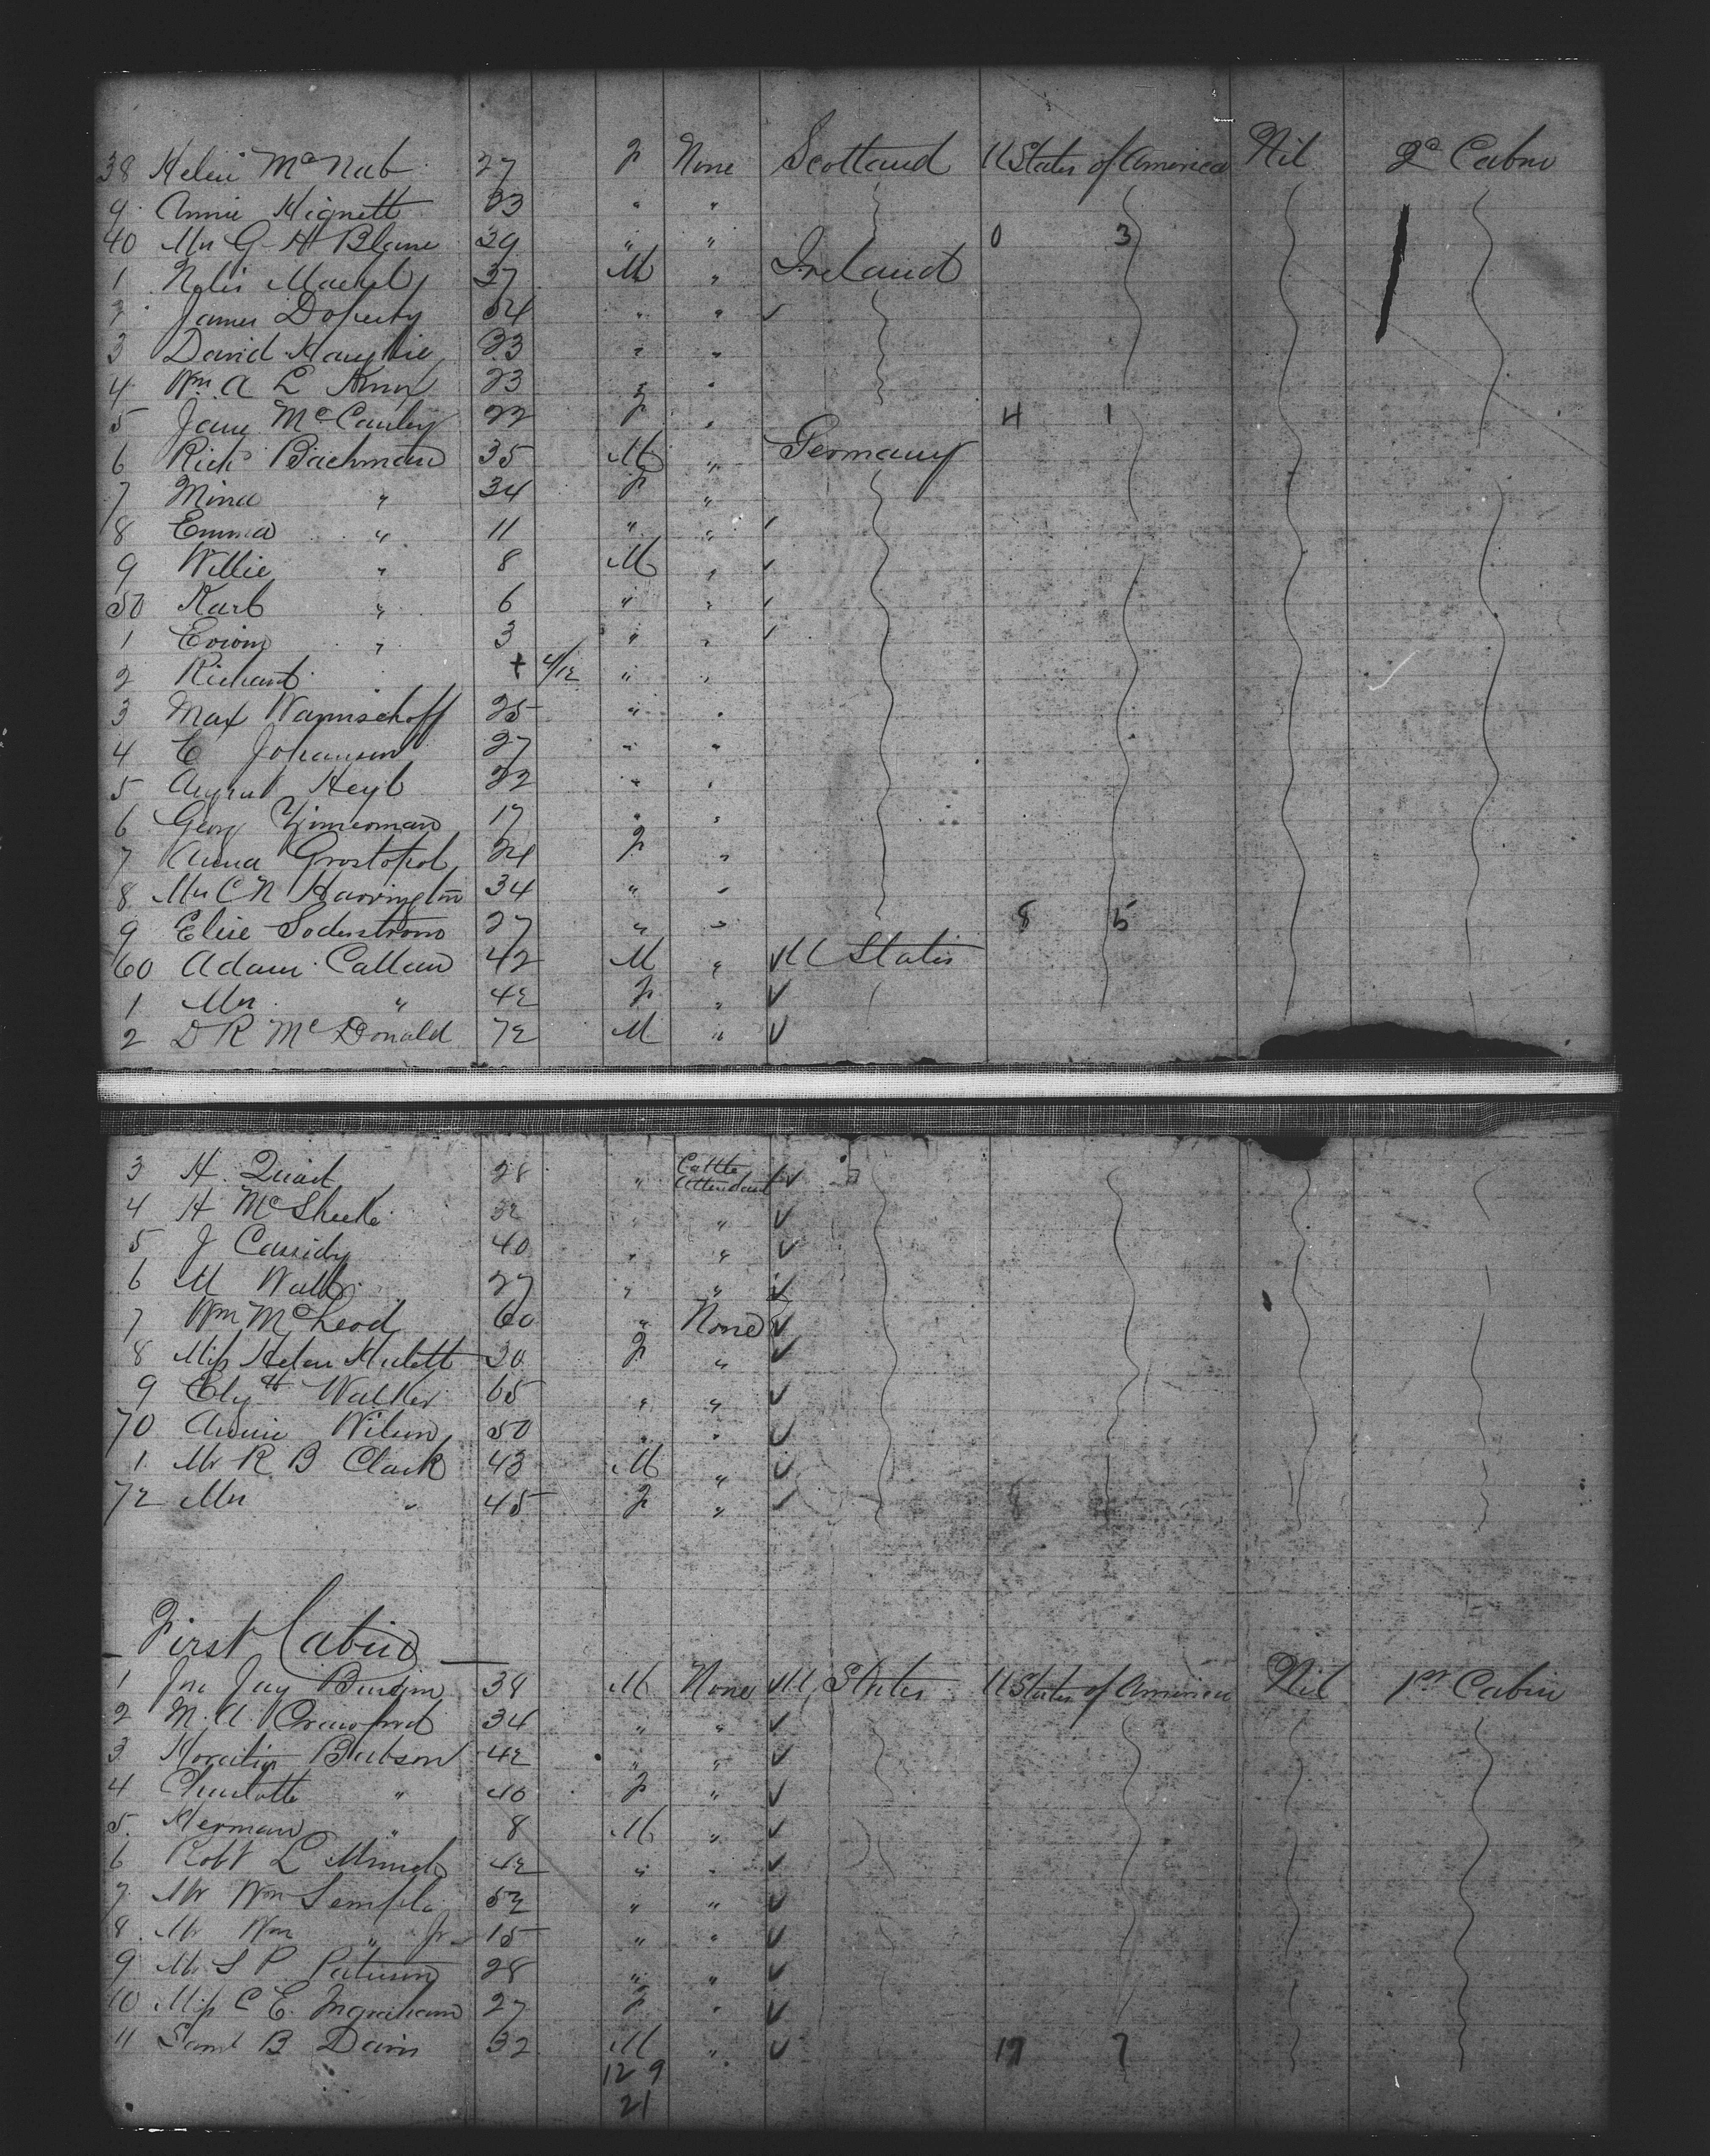 38 Helen McNab 27 F None Scotland U States of America Nil 2d Cabin
9 Annie Hignett 33 " "
40 Mrs G H Blane 39 " " 0 3
1 M " Ireland
2 James Doherty 54 " "
3 David 33 " "
4 Wm A L Knox 23 " "
5 Jane McCauley 22 F " 4 1
6 Rich Bachman 35 M " Germany
7 Mina " 34 F "
8 Emma " 11 " "
9 Willie " 8 M "
50 Karl " 6 " "
1 " 3 " "
2 Richard " 4/12 " "
3 Max Wannschoff 25 " "
4 E Johanson 27 " "
5 August Heyl 22 " "
6 Georg Zimerman 17 " "
7 Anna 24 F "
8 Mrs C N Harrington 34 " "
9 Elise Soderstrom 27 " " 8 5
60 Adam Callan 42 M " U States
1 Mrs " 42 F "
2 D R McDonald 72 M "
3 H Quiad 28 " Cattle Attendant
4 H 32 " "
5 J Cassidy 40 " "
6 M 27 " "
7 Wm McLeod 60 " None
8 Miss Helen 30 F "
9 Elizth Walker 65 " "
70 Annie Wilson 50 " "
1 Mr R B Clark 43 M "
72 Mrs " 45 F "
First Cabin
1 Jno Jay 38 M None U States U States of America Nil 1st Cabin
2 M A Crawford 34 " "
3 Horatio Babson 42 " "
4 Charlotte " 40 F "
5 Herman " 8 M "
6 Robt L 42 " "
7 Mr Wm Semple 52 " "
8 Mr Wm " Jr 15 " "
9 Mr S P 28 " "
10 Miss C E Ingraham 27 F "
11 Saml B Davis 32 M " 17 7
12 9
21